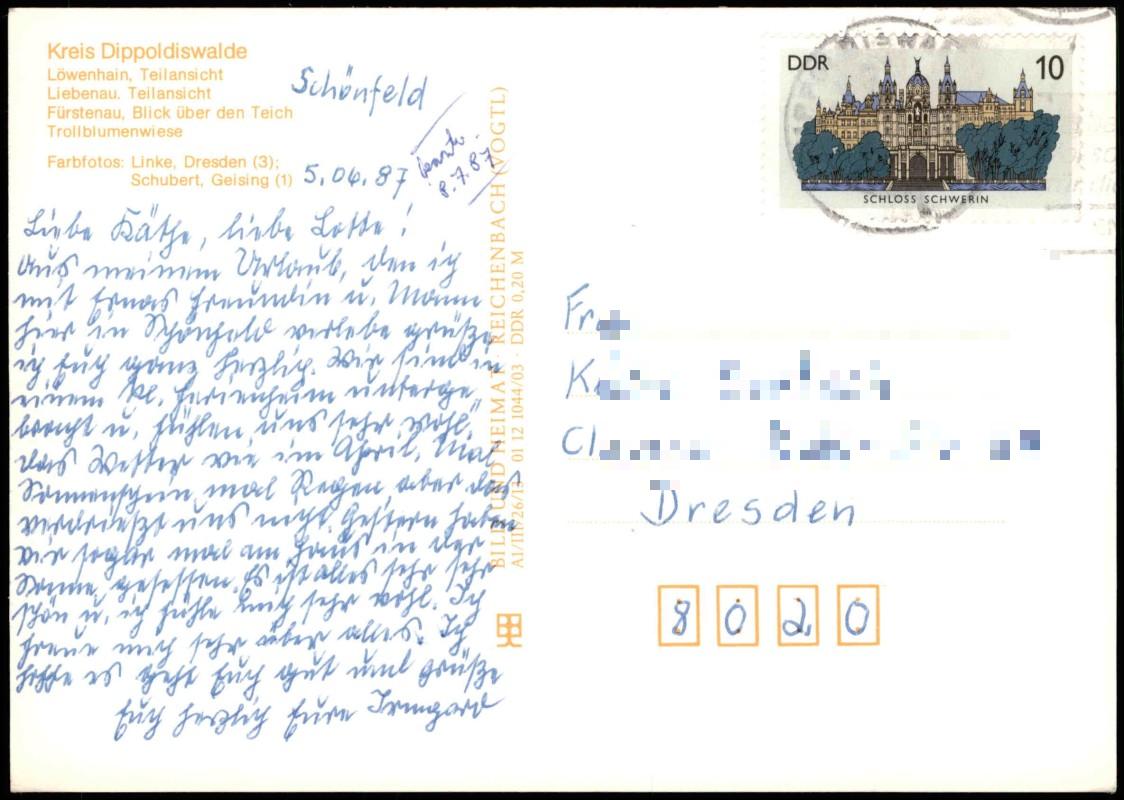 Kreis Dippoldiswalde
Löwenhain, Teilansicht
Liebenau. Teilansicht
Fürstenau, Blick über den Teich
Trollblumenwiese
Farbfotos: Linke, Dresden (3);
Schubert, Geising (1)
Schönfeld
5.06.87
8.7.87
Liebe Käthe, liebe Lotte!
Aus meinem Urlaub, den ich
mit Ernas Freundin u. Mann
hier in Schönfeld verlebe grüße
ich Euch ganz herzlich. Wir sind in
einem kl. Ferienheim unterge
bracht u. fühlen uns sehr wohl,
das Wetter wie im April. Mal
Sonnenschein mal Regen, aber das
verdrießt uns nicht. Gestern haben
wir sogar mal am Haus in der
Sonne gesessen. Es ist alles sehr sehr
schön u. ich fühle mich sehr wohl. Ich
freue mich sehr über alles. Ich
hoffe es geht Euch gut und grüße
Euch herzlich Eure Irmgard
BILD UND HEIMAT · REICHENBACH (VOGTL)
A1/III/26/13 01 12 1044/03 · DDR 0,20 M
DDR
10
SCHLOSS SCHWERIN
Dresden
8020